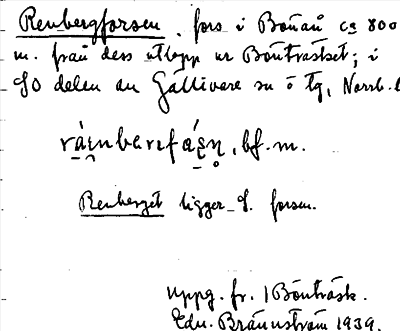 Renbergforsen, fors i Bönån ca 800
m. från dess utlopp ur Bönträsket; i
SO delen av Gällivare sn o tg, Norrb. l
bf. m.
Renberget ligger S. forsen.
Uppg. fr. i Bönträsk.
Edv. Brännström 1939.